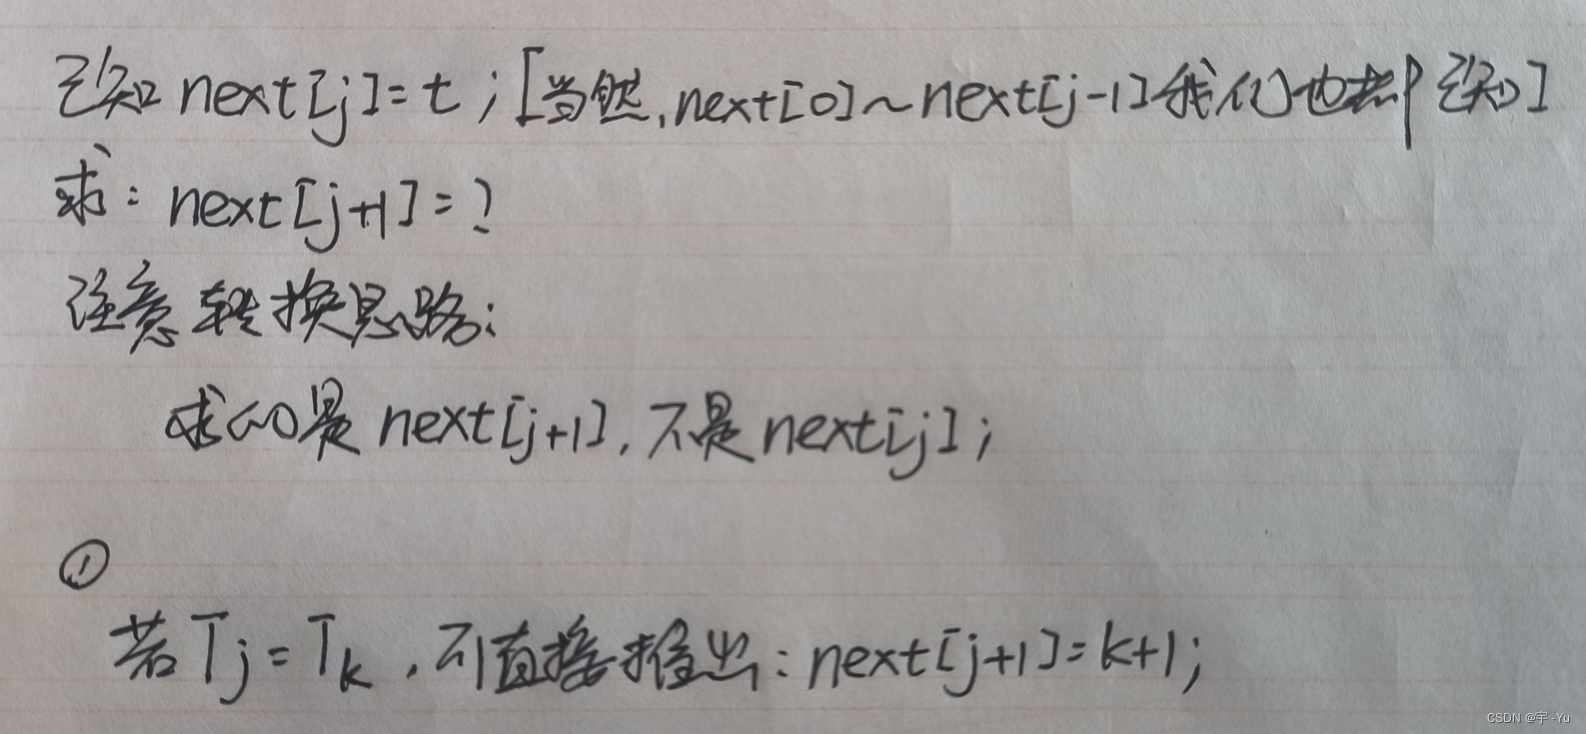 已知 next[j]=t；[当然,next[0]~next[j-1]我们也都已知]
求：next[j+1]=?
注意转换思路：
求的是next[j+1],不是next[j]；
①
若Tj=Tk,可直接推出：next[j+1]=k+1；
CSDN @宇-Yu